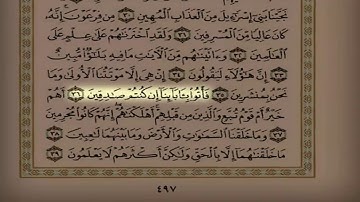 نَجَّيْنَا بَنِي إِسْرَائِيلَ مِنَ الْعَذَابِ الْمُهِينِ ﴿٣٠﴾ مِن فِرْعَوْنَ إِنَّهُ
كَانَ عَالِيًا مِّنَ الْمُسْرِفِينَ ﴿٣١﴾ وَلَقَدِ اخْتَرْنَاهُمْ عَلَىٰ عِلْمٍ عَلَى
الْعَالَمِينَ ﴿٣٢﴾ وَآتَيْنَاهُم مِّنَ الْآيَاتِ مَا فِيهِ بَلَاءٌ مُّبِينٌ
﴿٣٣﴾ إِنَّ هَٰؤُلَاءِ لَيَقُولُونَ ﴿٣٤﴾ إِنْ هِيَ إِلَّا مَوْتَتُنَا الْأُولَىٰ وَمَا
نَحْنُ بِمُنشَرِينَ ﴿٣٥﴾ فَأْتُوا بِآبَائِنَا إِن كُنتُمْ صَادِقِينَ ﴿٣٦﴾ أَهُمْ
خَيْرٌ أَمْ قَوْمُ تُبَّعٍ وَالَّذِينَ مِن قَبْلِهِمْ أَهْلَكْنَاهُمْ إِنَّهُمْ كَانُوا مُجْرِمِينَ
﴿٣٧﴾ وَمَا خَلَقْنَا السَّمَاوَاتِ وَالْأَرْضَ وَمَا بَيْنَهُمَا لَاعِبِينَ ﴿٣٨﴾
مَا خَلَقْنَاهُمَا إِلَّا بِالْحَقِّ وَلَٰكِنَّ أَكْثَرَهُمْ لَا يَعْلَمُونَ ﴿٣٩﴾
٤٩٧